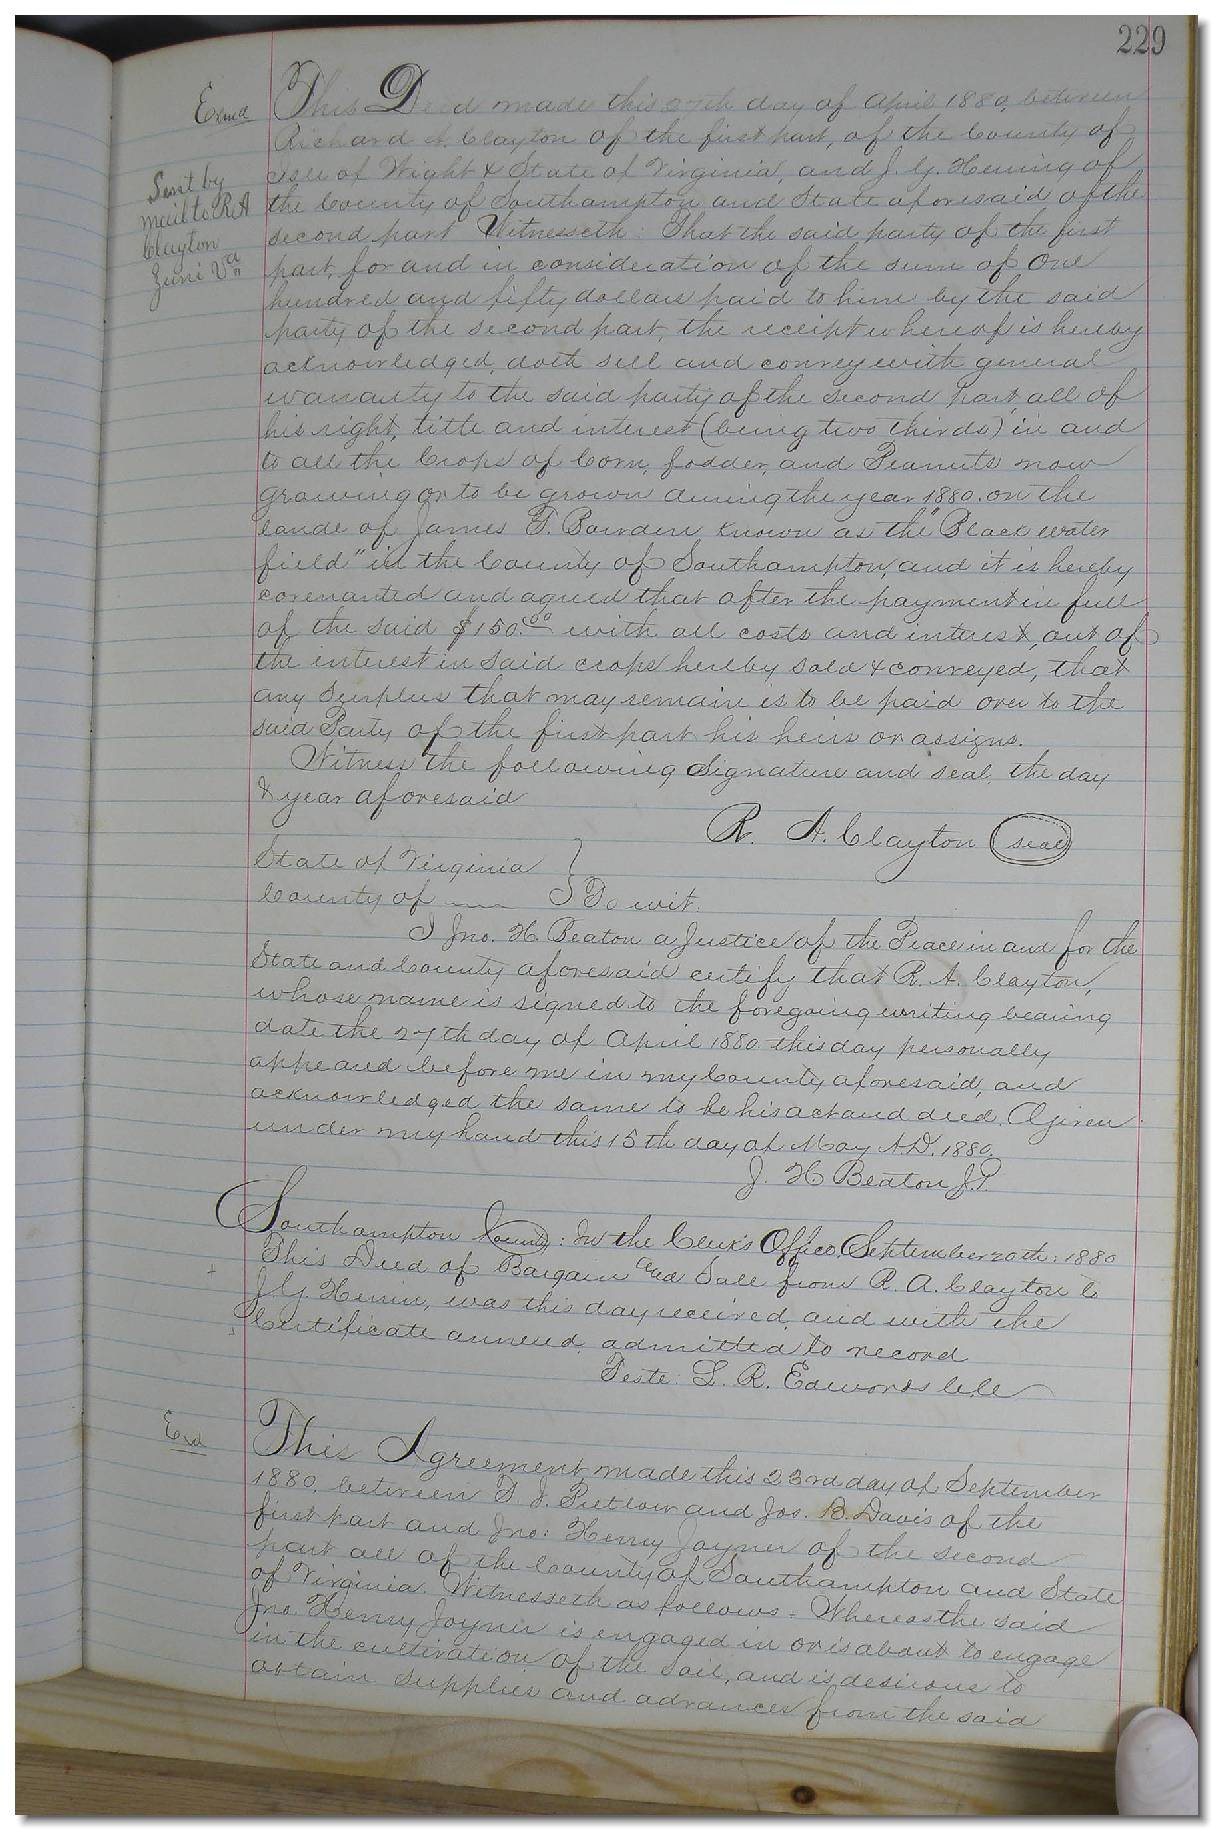 229
Exmd
Sent by
mail to R A
Clayton
Zuni Va
This Deed made this 27th day of April 1880, between
Richard A. Clayton of the first part, of the County of
Isle of Wight & State of Virginia, and J. G. of
the County of Southampton and State aforesaid of the
second part Witnesseth: That the said party of the first
part, for and in consideration of the sum of One
hundred and fifty dollars paid to him by the said
party of the second part, the receipt whereof is hereby
acknowledged, doth sell and convey with general
warranty to the said party of the second part, all of
his right, title and interest (being two thirds) in and
to all the Crops of Corn, fodder, and Peanuts now
growing or to be grown during the year 1880. on the
lands of James T. Bowden known as the "Black water
field" in the County of Southampton, and it is hereby
covenanted and agreed that after the payment in full
of the said $150.00 with all costs and interest, out of
the interest in said crops hereby sold & conveyed, that
any surplus that may remain is to be paid over to the
said Party of the first part his heirs or assigns.
Witness the following signature and seal, the day
& year aforesaid
R. A. Clayton (seal)
State of Virginia
County of — To wit.
I Jno. H. Beaton a Justice of the Peace in and for the
State and County aforesaid certify that R. A. Clayton,
whose name is signed to the foregoing writing bearing
date the 27th day of April 1880 this day personally
appeared before me in my County aforesaid, and
acknowledged the same to be his act and deed. Given
under my hand this 15th day of May A.D. 1880.
J. H Beaton J.P.
Southampton County: In the Clerk's Office, September 20th: 1880
This Deed of Bargain and Sale from R. A. Clayton to
J. G. was this day received, and with the
Certificate annexed, admitted to record
Teste: L. R. Edwards C.C.
Exd
This Agreement made this 23rd day of September
1880. between and Jos. B. Davis of the
first part and Jno: Henry Joyner of the second
part all of the County of Southampton and State
of Virginia Witnesseth as follows - Whereas the said
Jno Henry Joyner is engaged in or is about to engage
in the cultivation of the soil, and is desirous to
obtain supplies and advances from the said